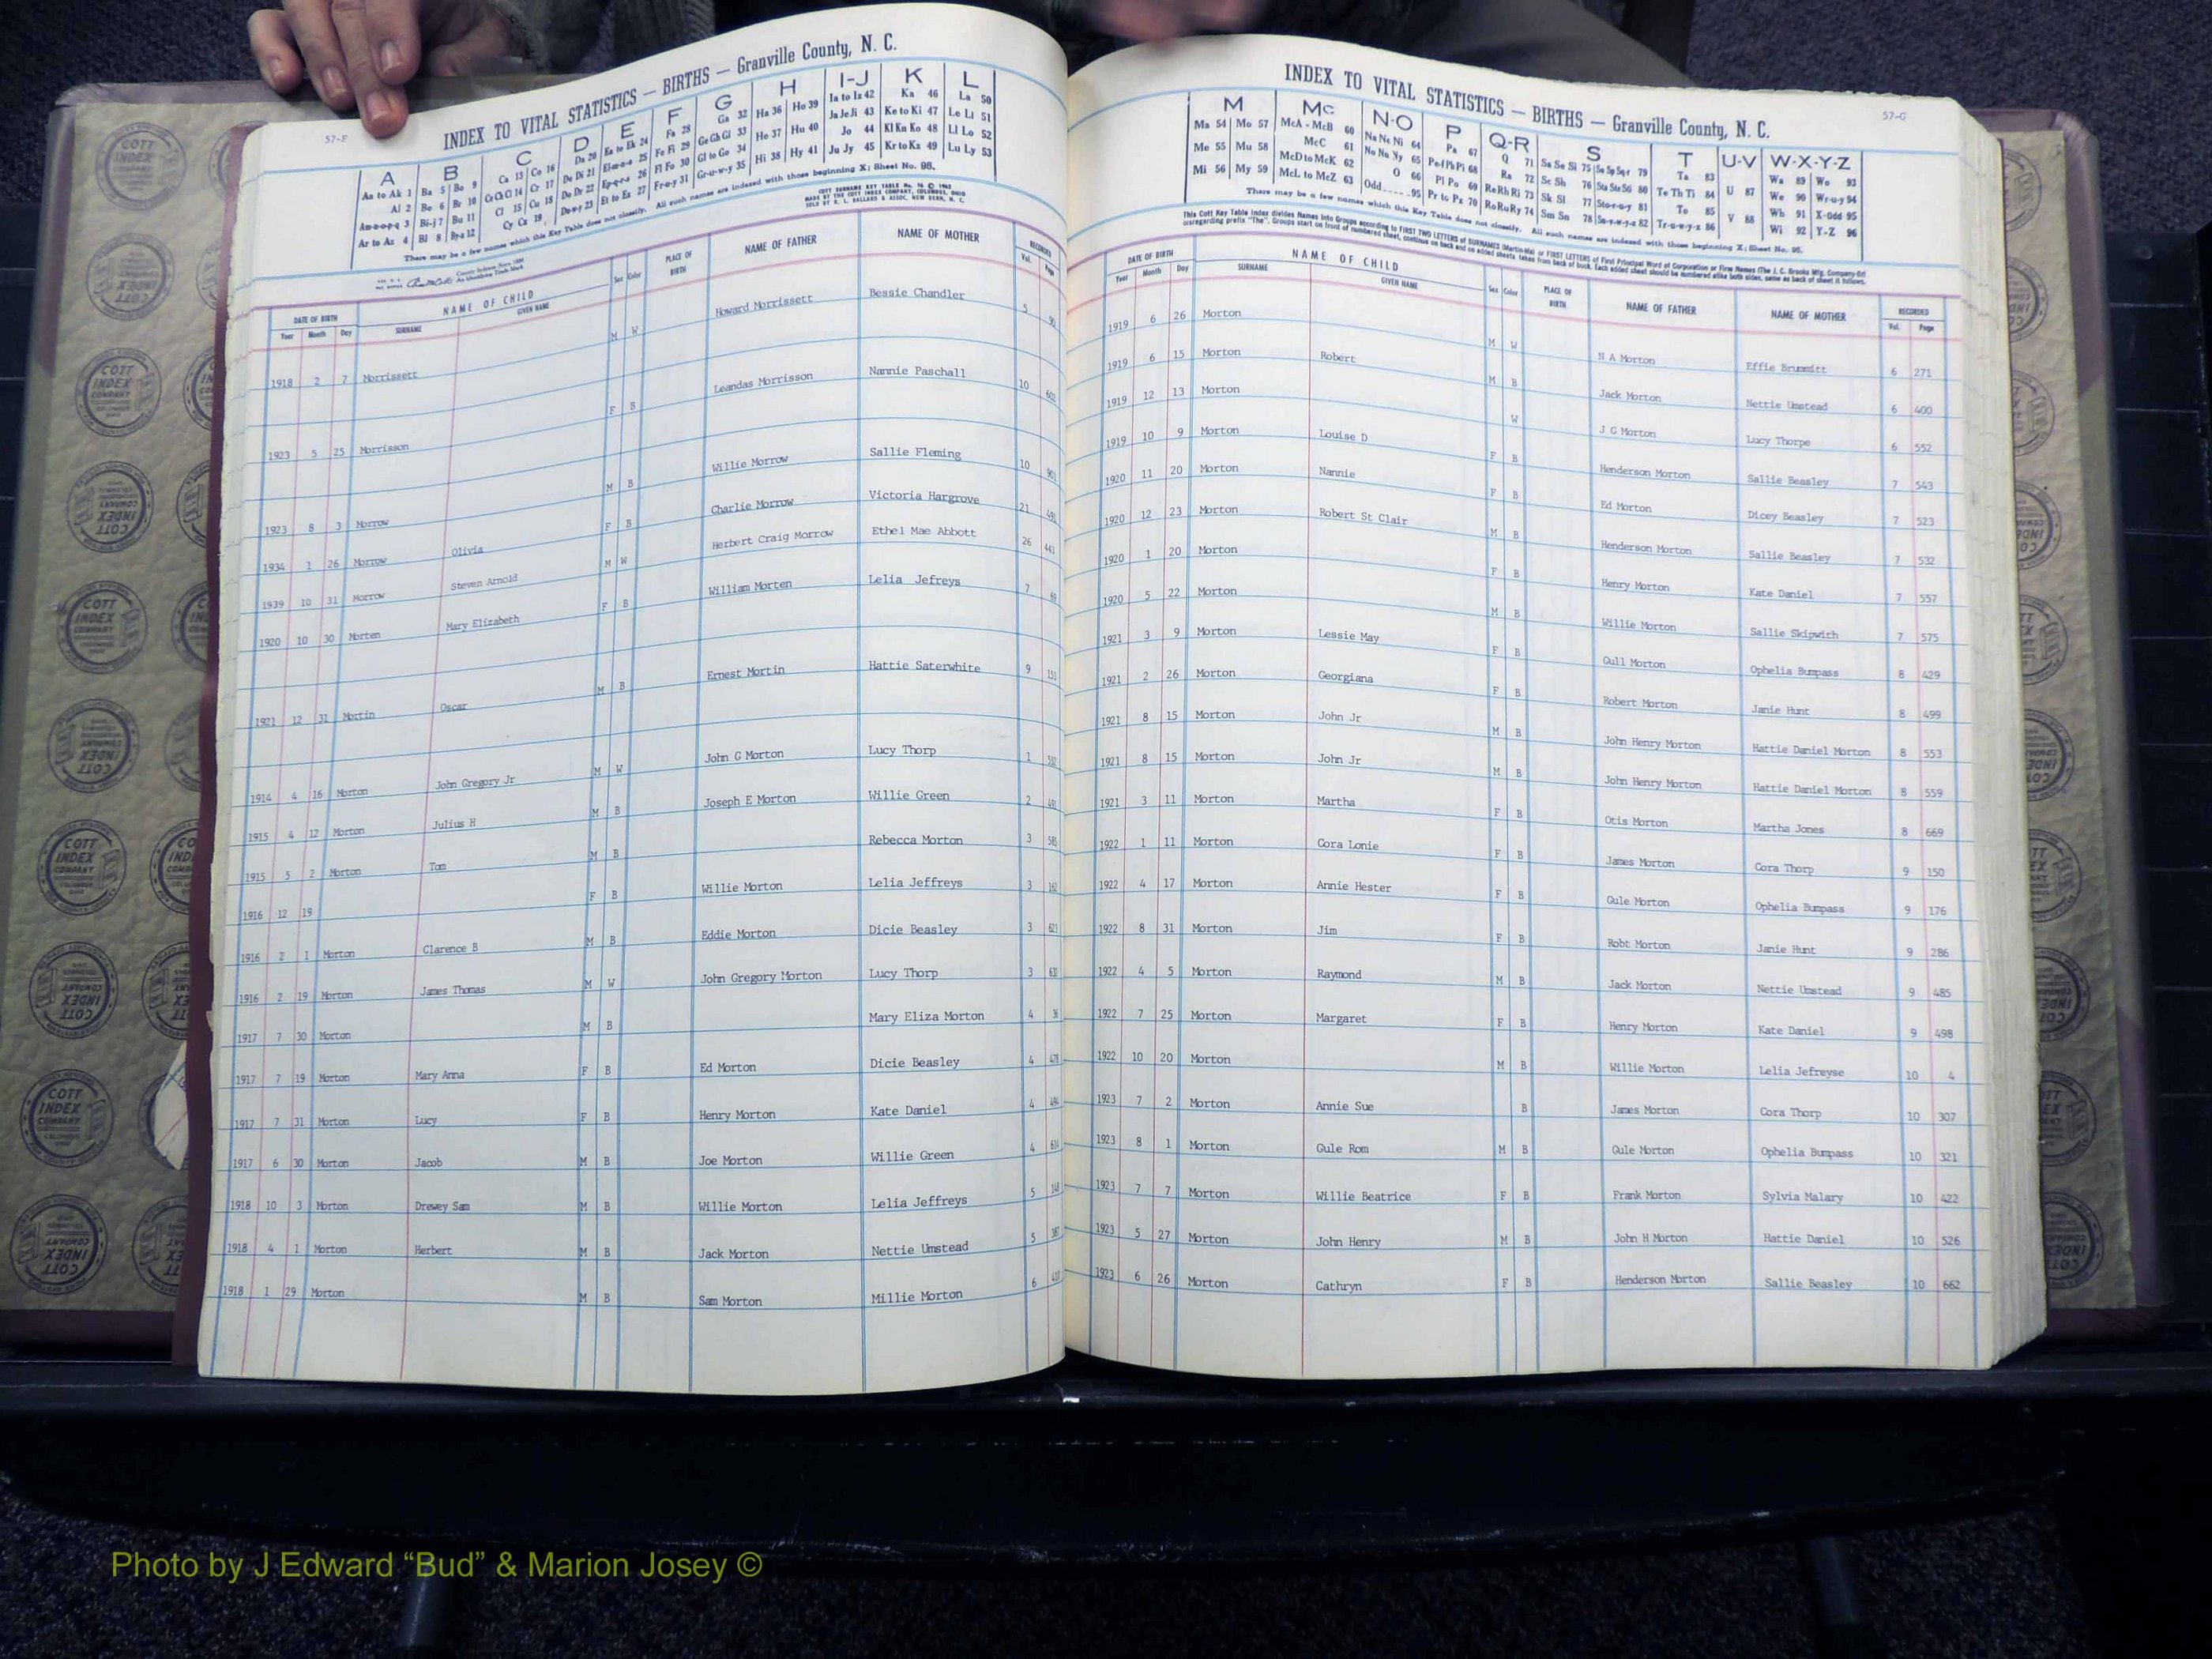 57-F
INDEX TO VITAL STATISTICS — BIRTHS — Granville County, N. C.
A B C D E F G H I-J K L
Aa to Ak 1 Ba 5 Bo 9 Ca 13 Co 16 Da 20 Ea to Ek 24 Fa 28 Ga 32 Ha 36 Ho 39 Ia to Iz 42 Ka 46 La 50
Al 2 Be 6 Br 10 Ce Ch Ci 14 Cr 17 De Di 21 El-m-n-o 25 Fe Fi 29 Ge Gh Gi 33 He 37 Hu 40 Ja Je Ji 43 Ke to Ki 47 Le Li 51
Am-n-o-p-q 3 Bi-j 7 Bu 11 Cl 15 Cu 18 Do Dr 22 Ep-q-r-s 26 Fl Fo 30 Gl to Go 34 Hi 38 Hy 41 Jo 44 Kl Kn Ko 48 Ll Lo 52
Ar to Az 4 Bl 8 By-z 12 Cy Cz 19 Du-w-y 23 Et to Ez 27 Fr-u-y 31 Gr-u-w-y 35 Ju Jy 45 Kr to Kz 49 Lu Ly 53
There may be a few names which this Key Table does not classify. All such names are indexed with those beginning X; Sheet No. 95.
DATE OF BIRTH NAME OF CHILD Sex Color PLACE OF BIRTH NAME OF FATHER NAME OF MOTHER RECORDED
Year Month Day SURNAME GIVEN NAME Vol. Page
1918 2 7 Morrissett M W Howard Morrissett Bessie Chandler 5 90
1923 5 25 Morrisson F B Leandas Morrisson Nannie Paschall 10
1923 8 3 Morrow M B Willie Morrow Sallie Fleming 10
1934 1 26 Morrow Olivia F B Charlie Morrow Victoria Hargrove 21
1939 10 31 Morrow Steven Arnold M W Herbert Craig Morrow Ethel Mae Abbott 26 443
1920 10 30 Morten Mary Elizabeth F B William Morten Lelia Jefreys 7
1921 12 31 Mortin Oscar M B Ernest Mortin Hattie Saterwhite 9
1914 4 16 Morton John Gregory Jr M W John G Morton Lucy Thorp 1
1915 4 12 Morton Julius H M B Joseph E Morton Willie Green 2
1915 5 2 Morton Tom M B Rebecca Morton 3
1916 12 19 F B Willie Morton Lelia Jeffreys 3
1916 2 1 Morton Clarence B M B Eddie Morton Dicie Beasley 3
1916 2 19 Morton James Thomas M W John Gregory Morton Lucy Thorp 3
1917 7 30 Morton M B Mary Eliza Morton 4
1917 7 19 Morton Mary Anna F B Ed Morton Dicie Beasley 4
1917 7 31 Morton Lucy F B Henry Morton Kate Daniel 4
1917 6 30 Morton Jacob M B Joe Morton Willie Green 4
1918 10 3 Morton Drewey Sam M B Willie Morton Lelia Jeffreys 5
1918 4 1 Morton Herbert M B Jack Morton Nettie Umstead 5
1918 1 29 Morton M B Sam Morton Millie Morton 6
57-G
INDEX TO VITAL STATISTICS — BIRTHS — Granville County, N. C.
M Mc N-O P Q-R S T U-V W-X-Y-Z
Ma 54 Mo 57 McA - McB 60 Na Ne Ni 64 Pa 67 Q 71 Sa Se Si 75 So Sp Sq-r 79 Ta 83 Wa 89 Wo 93
Me 55 Mu 58 McC 61 No Nu Ny 65 Pe-f Ph Pi 68 Ra 72 Sc Sh 76 Sta Ste Sti 80 Te Th Ti 84 U 87 We 90 Wr-u-y 94
Mi 56 My 59 McD to McK 62 O 66 Pl Po 69 Re Rh Ri 73 Sk Sl 77 Sto-r-u-y 81 To 85 Wh 91 X-Odd 95
McL to McZ 63 Odd 95 Pr to Pz 70 Ro Ru Ry 74 Sm Sn 78 Su-v-w-y-z 82 Tr-u-w-y-z 86 V 88 Wi 92 Y-Z 96
There may be a few names which this Key Table does not classify. All such names are indexed with those beginning X; Sheet No. 95.
DATE OF BIRTH NAME OF CHILD Sex Color PLACE OF BIRTH NAME OF FATHER NAME OF MOTHER RECORDED
Year Month Day SURNAME GIVEN NAME Vol. Page
1919 6 26 Morton M W N A Morton Effie Brummitt 6 271
1919 6 15 Morton Robert M B Jack Morton Nettie Umstead 6 400
1919 12 13 Morton W J G Morton Lucy Thorpe 6 552
1919 10 9 Morton Louise D F B Henderson Morton Sallie Beasley 7 543
1920 11 20 Morton Nannie F B Ed Morton Dicey Beasley 7 523
1920 12 23 Morton Robert St Clair M B Henderson Morton Sallie Beasley 7 532
1920 1 20 Morton F B Henry Morton Kate Daniel 7 557
1920 5 22 Morton M B Willie Morton Sallie Skipwith 7 575
1921 3 9 Morton Lessie May F B Gull Morton Ophelia Bumpass 8 429
1921 2 26 Morton Georgiana F B Robert Morton Janie Hunt 8 499
1921 8 15 Morton John Jr M B John Henry Morton Hattie Daniel Morton 8 553
1921 8 15 Morton John Jr M B John Henry Morton Hattie Daniel Morton 8 559
1921 3 11 Morton Martha F B Otis Morton Martha Jones 8 669
1922 1 11 Morton Cora Lonie F B James Morton Cora Thorp 9 150
1922 4 17 Morton Annie Hester F B Gule Morton Ophelia Bumpass 9 176
1922 8 31 Morton Jim F B Robt Morton Janie Hunt 9 286
1922 4 5 Morton Raymond M B Jack Morton Nettie Umstead 9 485
1922 7 25 Morton Margaret F B Henry Morton Kate Daniel 9 498
1922 10 20 Morton M B Willie Morton Lelia Jefreyse 10 4
1923 7 2 Morton Annie Sue B James Morton Cora Thorp 10 307
1923 8 1 Morton Gule Rom M B Gule Morton Ophelia Bumpass 10 321
1923 7 7 Morton Willie Beatrice F B Frank Morton Sylvia Malary 10 422
1923 5 27 Morton John Henry M B John H Morton Hattie Daniel 10 526
1923 6 26 Morton Cathryn F B Henderson Morton Sallie Beasley 10 662
COTT INDEX COMPANY
Photo by J Edward “Bud” & Marion Josey ©